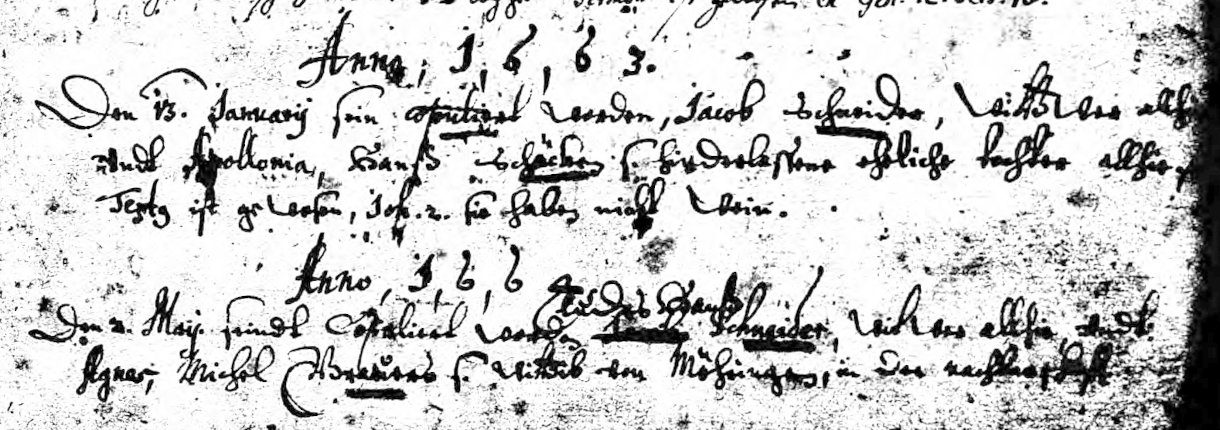 Anno, 1, 6, 6 3.
Den 13. Januarij sein copuliert worden, Jacob Schneider, Wittwer allhie
undt Apollonia, Hanß Schäcken s. hinderlassene eheliche tochter allhie.
Textg ist gewesen, Joh. 2. sie haben nicht Wein.
Anno, 1, 6, 6 4
Hanß
Den 2. Maij seindt Copuliert worden Schneider, Witwer allhie, undt
Agnes, Michel Brauers s. Wittib von Möhringen, in der nachbarschafft